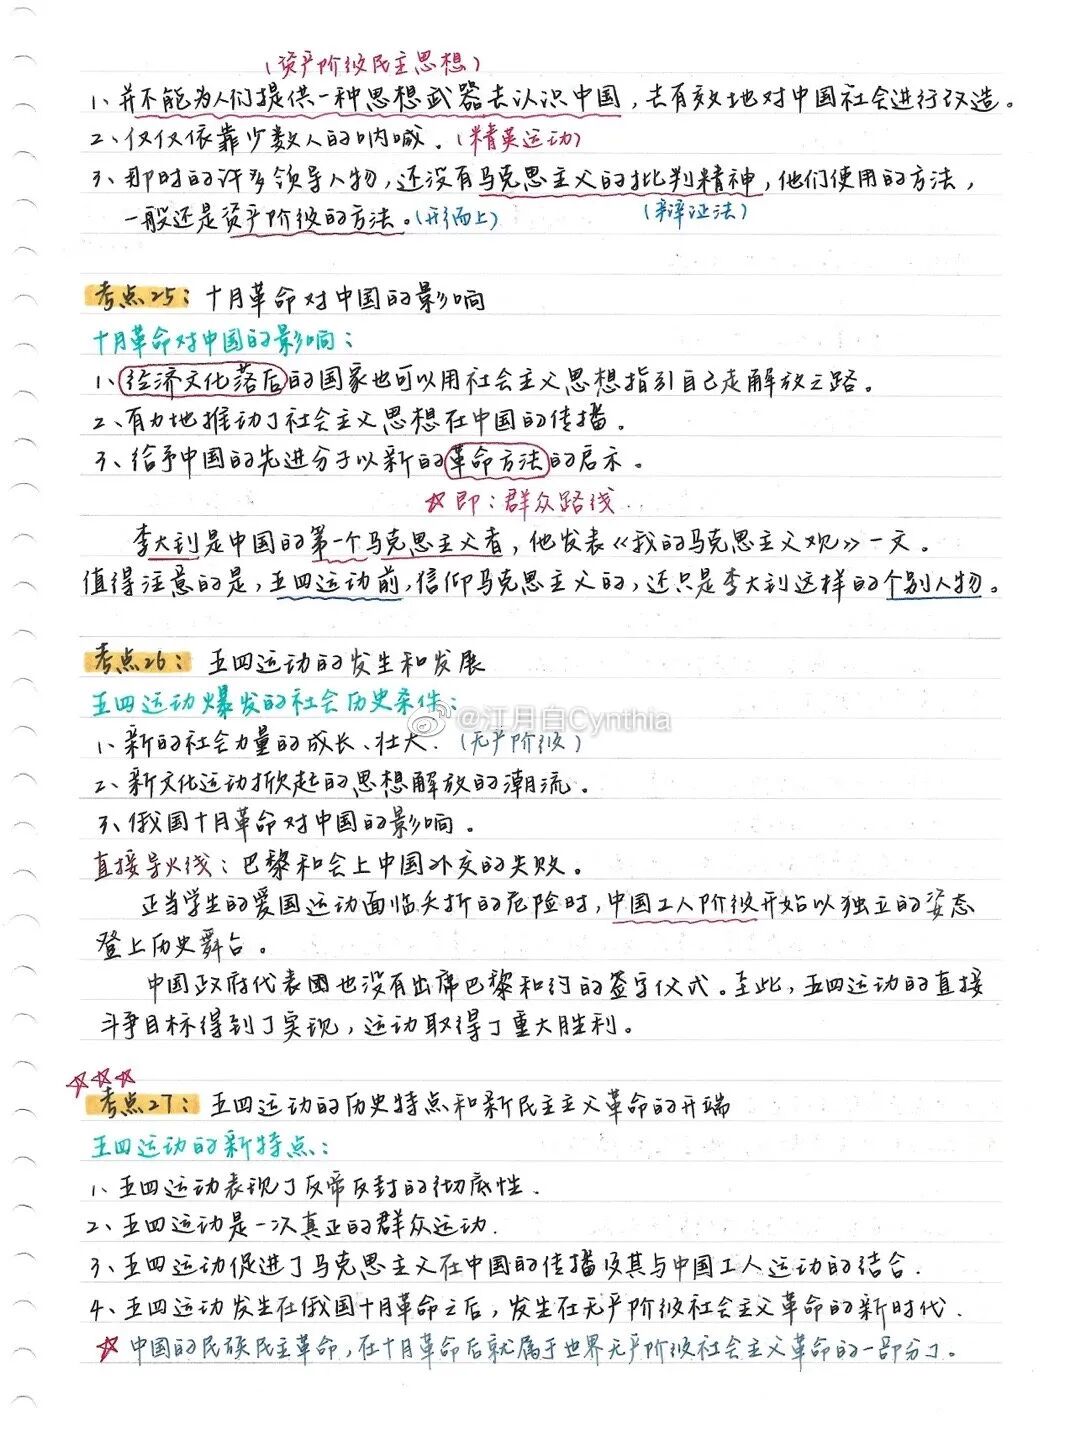 (资产阶级民主思想)
1、并不能为人们提供一种思想武器去认识中国，去有效地对中国社会进行改造。
2、仅仅依靠少数人的呐喊.(精英运动)
3、那时的许多领导人物，还没有马克思主义的批判精神，他们使用的方法，
一般还是资产阶级的方法。(形而上) (辩证法)
考点25：十月革命对中国的影响
十月革命对中国的影响：
1、经济文化落后的国家也可以用社会主义思想指引自己走解放之路。
2、有力地推动了社会主义思想在中国的传播.
3、给予中国的先进分子以新的革命方法的启示。
☆即：群众路线
李大钊是中国的第一个马克思主义者，他发表《我的马克思主义观》一文。
值得注意的是，五四运动前，信仰马克思主义的，还只是李大钊这样的个别人物。
考点26：五四运动的发生和发展
五四运动爆发的社会历史条件：
@江月白Cynthia
1、新的社会力量的成长、壮大.(无产阶级)
2、新文化运动掀起的思想解放的潮流.
3、俄国十月革命对中国的影响。
直接导火线：巴黎和会上中国外交的失败。
正当学生的爱国运动面临夭折的危险时，中国工人阶级开始以独立的姿态
登上历史舞台。
中国政府代表團也没有出席巴黎和约的签字仪式。至此，五四运动的直接
斗争目标得到了实现，运动取得了重大胜利。
☆☆☆
考点27：五四运动的历史特点和新民主主义革命的开端
五四运动的新特点：
1、五四运动表现了反帝反封的彻底性.
2、五四运动是一次真正的群众运动.
3、五四运动促进了马克思主义在中国的传播及其与中国工人运动的结合.
4、五四运动发生在俄国十月革命之后，发生在无产阶级社会主义革命的新时代.
☆中国的民族民主革命，在十月革命后就属于世界无产阶级社会主义革命的一部分了。